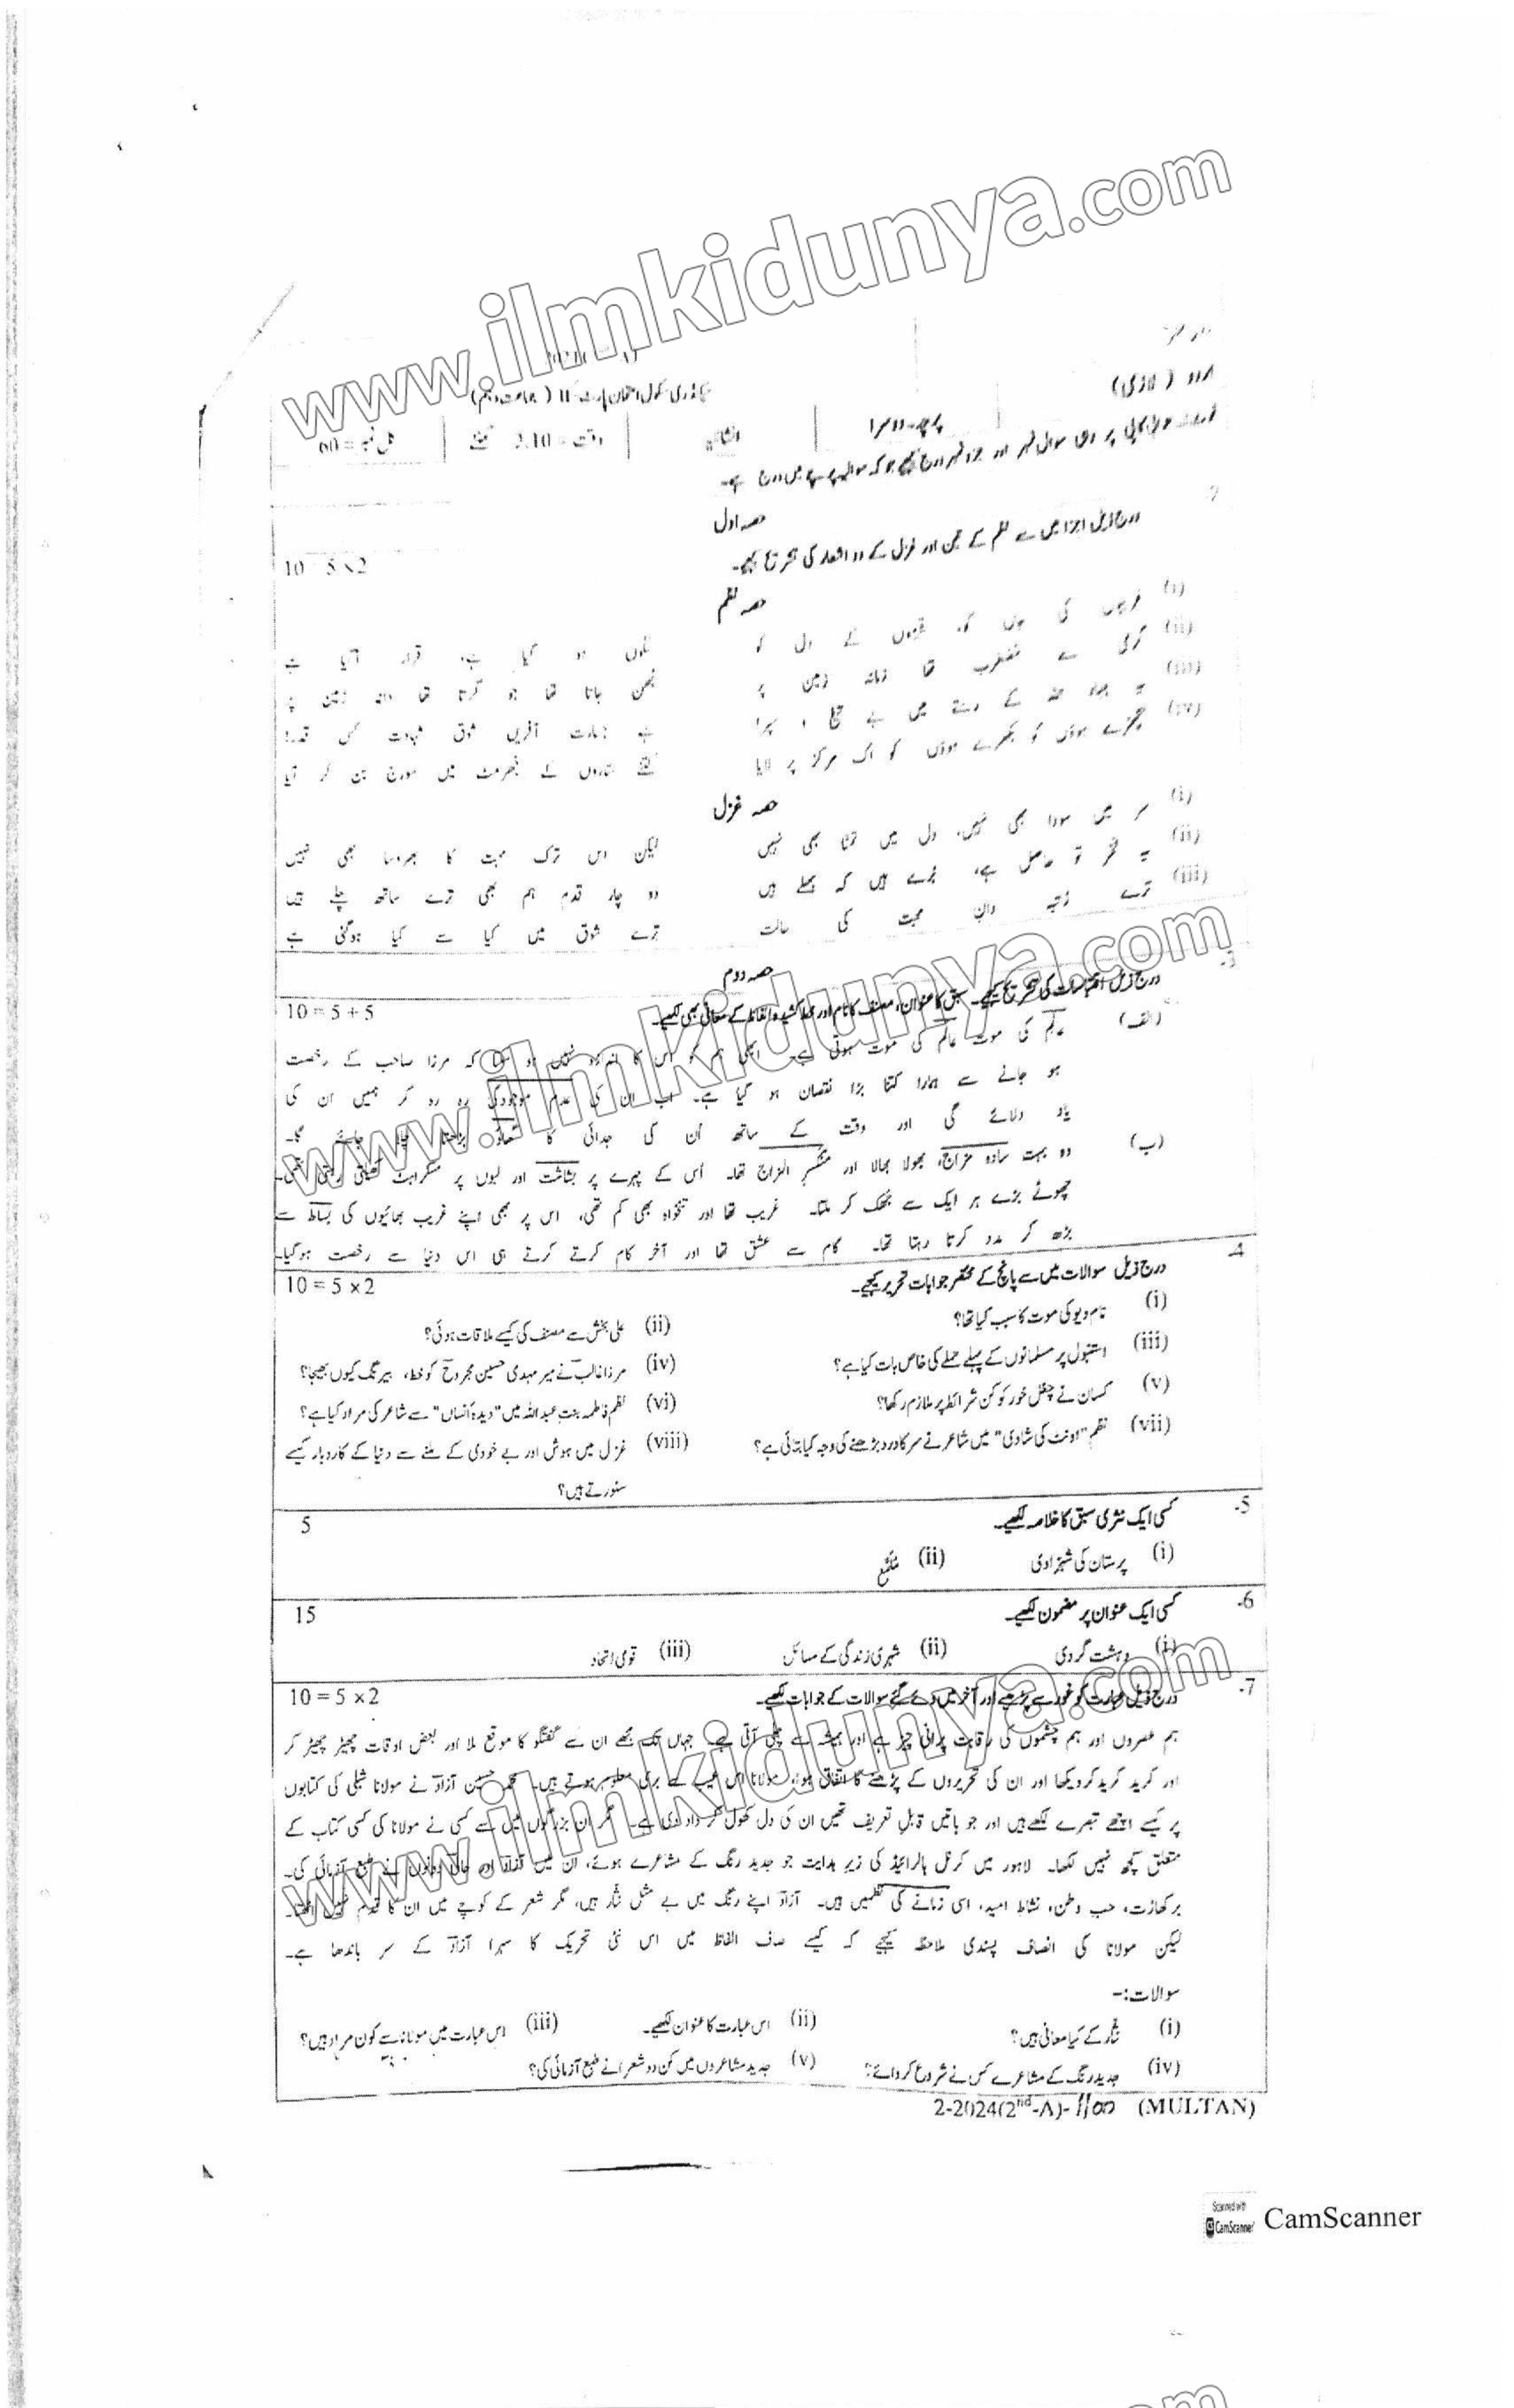 www.ilmkidunya.com
اردو (لازمی)
پرچہ-دوسرا
انشائیہ
وقت = 2.10 گھنٹے
کل نمبر = 60
حصہ اول
درج ذیل اجزا میں سے نظم کے تین اور غزل کے دو اشعار کی تشریح کیجیے۔
10 = 5 x 2
حصہ نظم
(i)
(ii)
گرمی سے مضطرب تھا زمانہ زمین پر
بھن جاتا تھا جو گرتا تھا دانہ زمین پر
(iii)
یہ جہاد اللہ کے رستے میں بے تیغ و سپر!
ہے جسارت آفریں شوق شہادت کس قدر!
(iv)
بچھڑے ہوؤں کو بکھرے ہوؤں کو اک مرکز پر لایا
کتنے ستاروں کے جھرمٹ میں سورج بن کر آیا
حصہ غزل
(i)
سر میں سودا بھی نہیں، دل میں تمنا بھی نہیں
لیکن اس ترک محبت کا بھروسا بھی نہیں
(ii)
یہ فخر تو حاصل ہے، بُرے ہیں کہ بھلے ہیں
دو چار قدم ہم بھی ترے ساتھ چلے ہیں
(iii)
ترے رُتبہ دانِ محبت کی حالت
ترے شوق میں کیا سے کیا ہوگئی ہے
حصہ دوم
-3
درج ذیل اقتباسات کی تشریح کیجیے۔ سبق کا عنوان، مصنف کا نام اور خط کشیدہ الفاظ کے معانی بھی لکھیے۔
10 = 5 + 5
(الف)
عالِم کی موت عالَم کی موت ہوتی ہے۔ ابھی ہم کو اس کا اندازہ نہیں ہو سکتا کہ مرزا صاحب کے رخصت
ہو جانے سے ہمارا کتنا بڑا نقصان ہو گیا ہے۔ اب ان کی عدم موجودگی رہ رہ کر ہمیں ان کی
یاد دلائے گی اور وقت کے ساتھ اُن کی جدائی کا بڑھتا چلا جائے گا۔
(ب)
وہ بہت سادہ مزاج، بھولا بھالا اور منکسر المزاج تھا۔ اُس کے چہرے پر بشاشت اور لبوں پر مسکراہٹ کھیلتی رہتی تھی۔
چھوٹے بڑے ہر ایک سے جھک کر ملتا۔ غریب تھا اور تنخواہ بھی کم تھی، اس پر بھی اپنے غریب بھائیوں کی بساط سے
بڑھ کر مدد کرتا رہتا تھا۔ کام سے عشق تھا اور آخر کام کرتے کرتے ہی اس دنیا سے رخصت ہوگیا۔
-4
درج ذیل سوالات میں سے پانچ کے مختصر جوابات تحریر کیجیے۔
10 = 5 x 2
(i) نام دیو کی موت کا سبب کیا تھا؟
(ii) علی بخش سے مصنف کی کیسے ملاقات ہوئی؟
(iii) استنبول پر مسلمانوں کے پہلے حملے کی خاص بات کیا ہے؟
(iv) مرزا غالبؔ نے میر مہدی حسین مجروحؔ کو خط، بیرنگ کیوں بھیجا؟
(v) کسان نے چغل خور کو کن شرائط پر ملازم رکھا؟
(vi) نظم فاطمہ بنت عبداللہ میں "دیدۂ انساں" سے شاعر کی مراد کیا ہے؟
(vii) نظم "اونٹ کی شادی" میں شاعر نے سر کا درد بڑھنے کی وجہ کیا بتائی ہے؟
(viii) غزل میں ہوش اور بے خودی کے ملنے سے دنیا کے کاروبار کیسے
سنورتے ہیں؟
-5
کسی ایک نثری سبق کا خلاصہ لکھیے۔
5
(i) پرستان کی شہزادی
(ii) مُلمّع
-6
کسی ایک عنوان پر مضمون لکھیے۔
15
(i) دہشت گردی
(ii) شہری زندگی کے مسائل
(iii) قومی اتحاد
-7
درج ذیل عبارت کو غور سے پڑھیے اور آخر میں دیے گئے سوالات کے جوابات لکھیے۔
10 = 5 x 2
ہم عصروں اور ہم چشموں کی رقابت پرانی چیز ہے اور ہمیشہ سے چلی آتی ہے۔ جہاں تک مجھے ان سے گفتگو کا موقع ملا اور بعض اوقات چھیڑ چھیڑ کر
اور کرید کرید کر دیکھا اور ان کی تحریروں کے پڑھنے کا اتفاق ہوا، مولانا اس عیب سے بری معلوم ہوتے ہیں۔ محمد حسین آزادؔ نے مولانا شبلی کی کتابوں
پر کیسے اچھے تبصرے لکھے ہیں اور جو باتیں قابلِ تعریف تھیں ان کی دل کھول کر داد دی ہے۔ مگر ان بزرگوں میں سے کسی نے مولانا کی کسی کتاب کے
متعلق کچھ نہیں لکھا۔ لاہور میں کرنل ہالرائیڈ کی زیر ہدایت جو جدید رنگ کے مشاعرے ہوئے، ان میں آزاد اور حالی دونوں نے طبع آزمائی کی۔
برکھارت، حب وطن، نشاط امید، اسی زمانے کی نظمیں ہیں۔ آزاد اپنے رنگ میں بے مثل نثّار ہیں، مگر شعر کے کوچے میں ان کا قدم نہیں اٹھتا۔
لیکن مولانا کی انصاف پسندی ملاحظہ کیجیے کہ کیسے صاف الفاظ میں اس نئی تحریک کا سہرا آزادؔ کے سر باندھا ہے۔
سوالات:-
(i) نثّار کے کیا معانی ہیں؟
(ii) اس عبارت کا عنوان لکھیے۔
(iii) اس عبارت میں مولانا سے کون مراد ہیں؟
(iv) جدید رنگ کے مشاعرے کس نے شروع کروائے؟
(v) جدید مشاعروں میں کن دو شعرا نے طبع آزمائی کی؟
2-2024(2nd-A)-1100 (MULTAN)
Scanned with
CamScanner
CamScanner